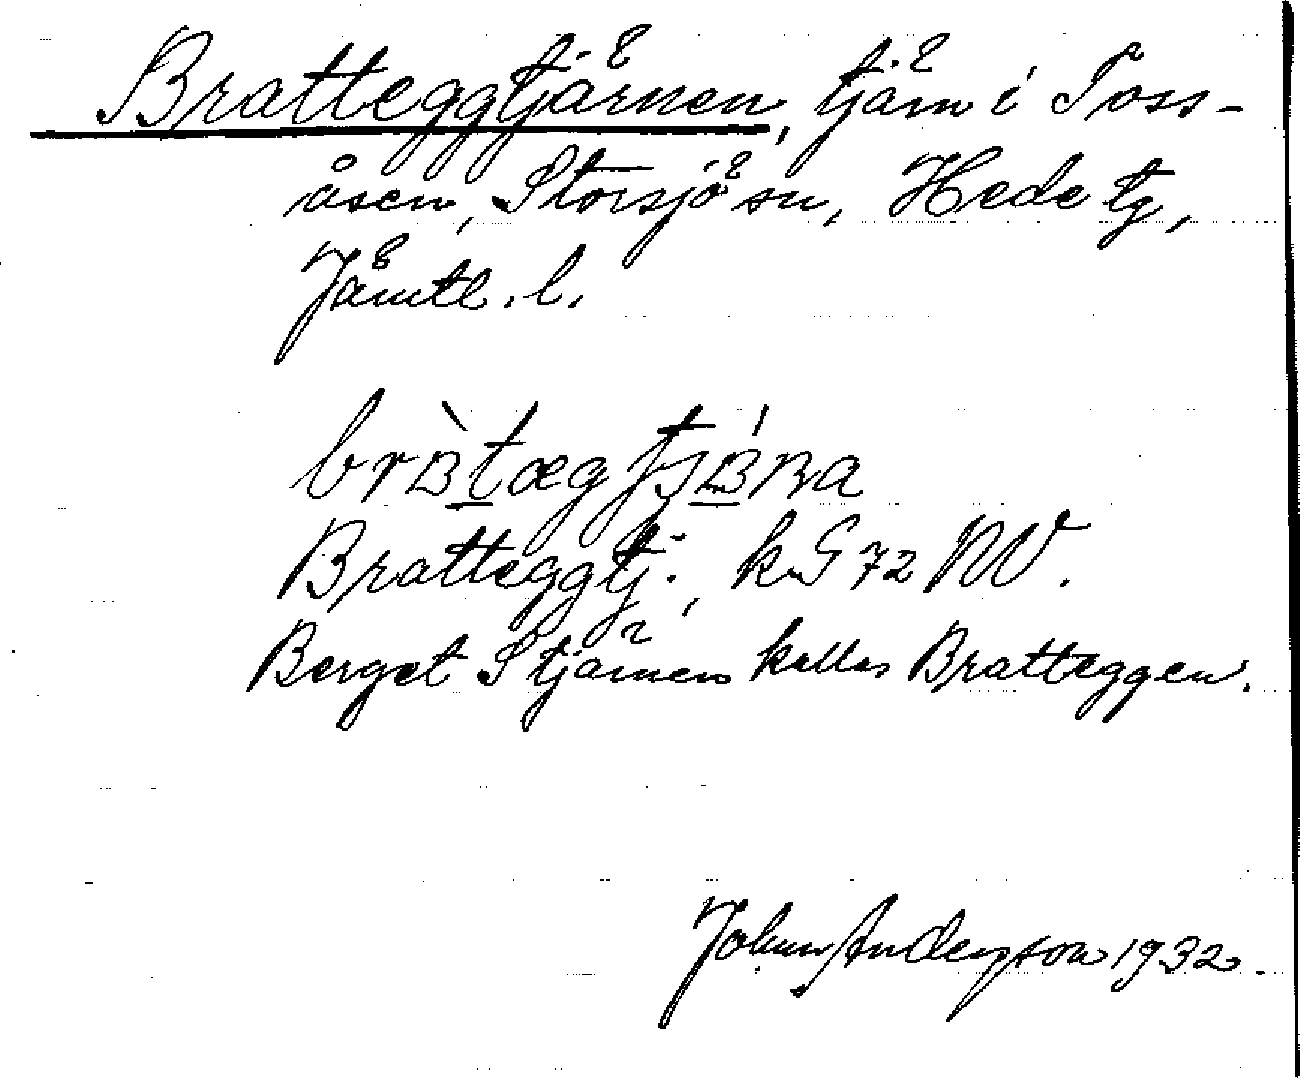 Bratteggtjärnen, tjärn i Toss-
åsen, Storsjö sn, Hede tg,
Jämtl. l.
Bratteggtj., kS 72 NV.
Berget S tjärnen kallas Bratteggen.
Johan Anderson 1932.